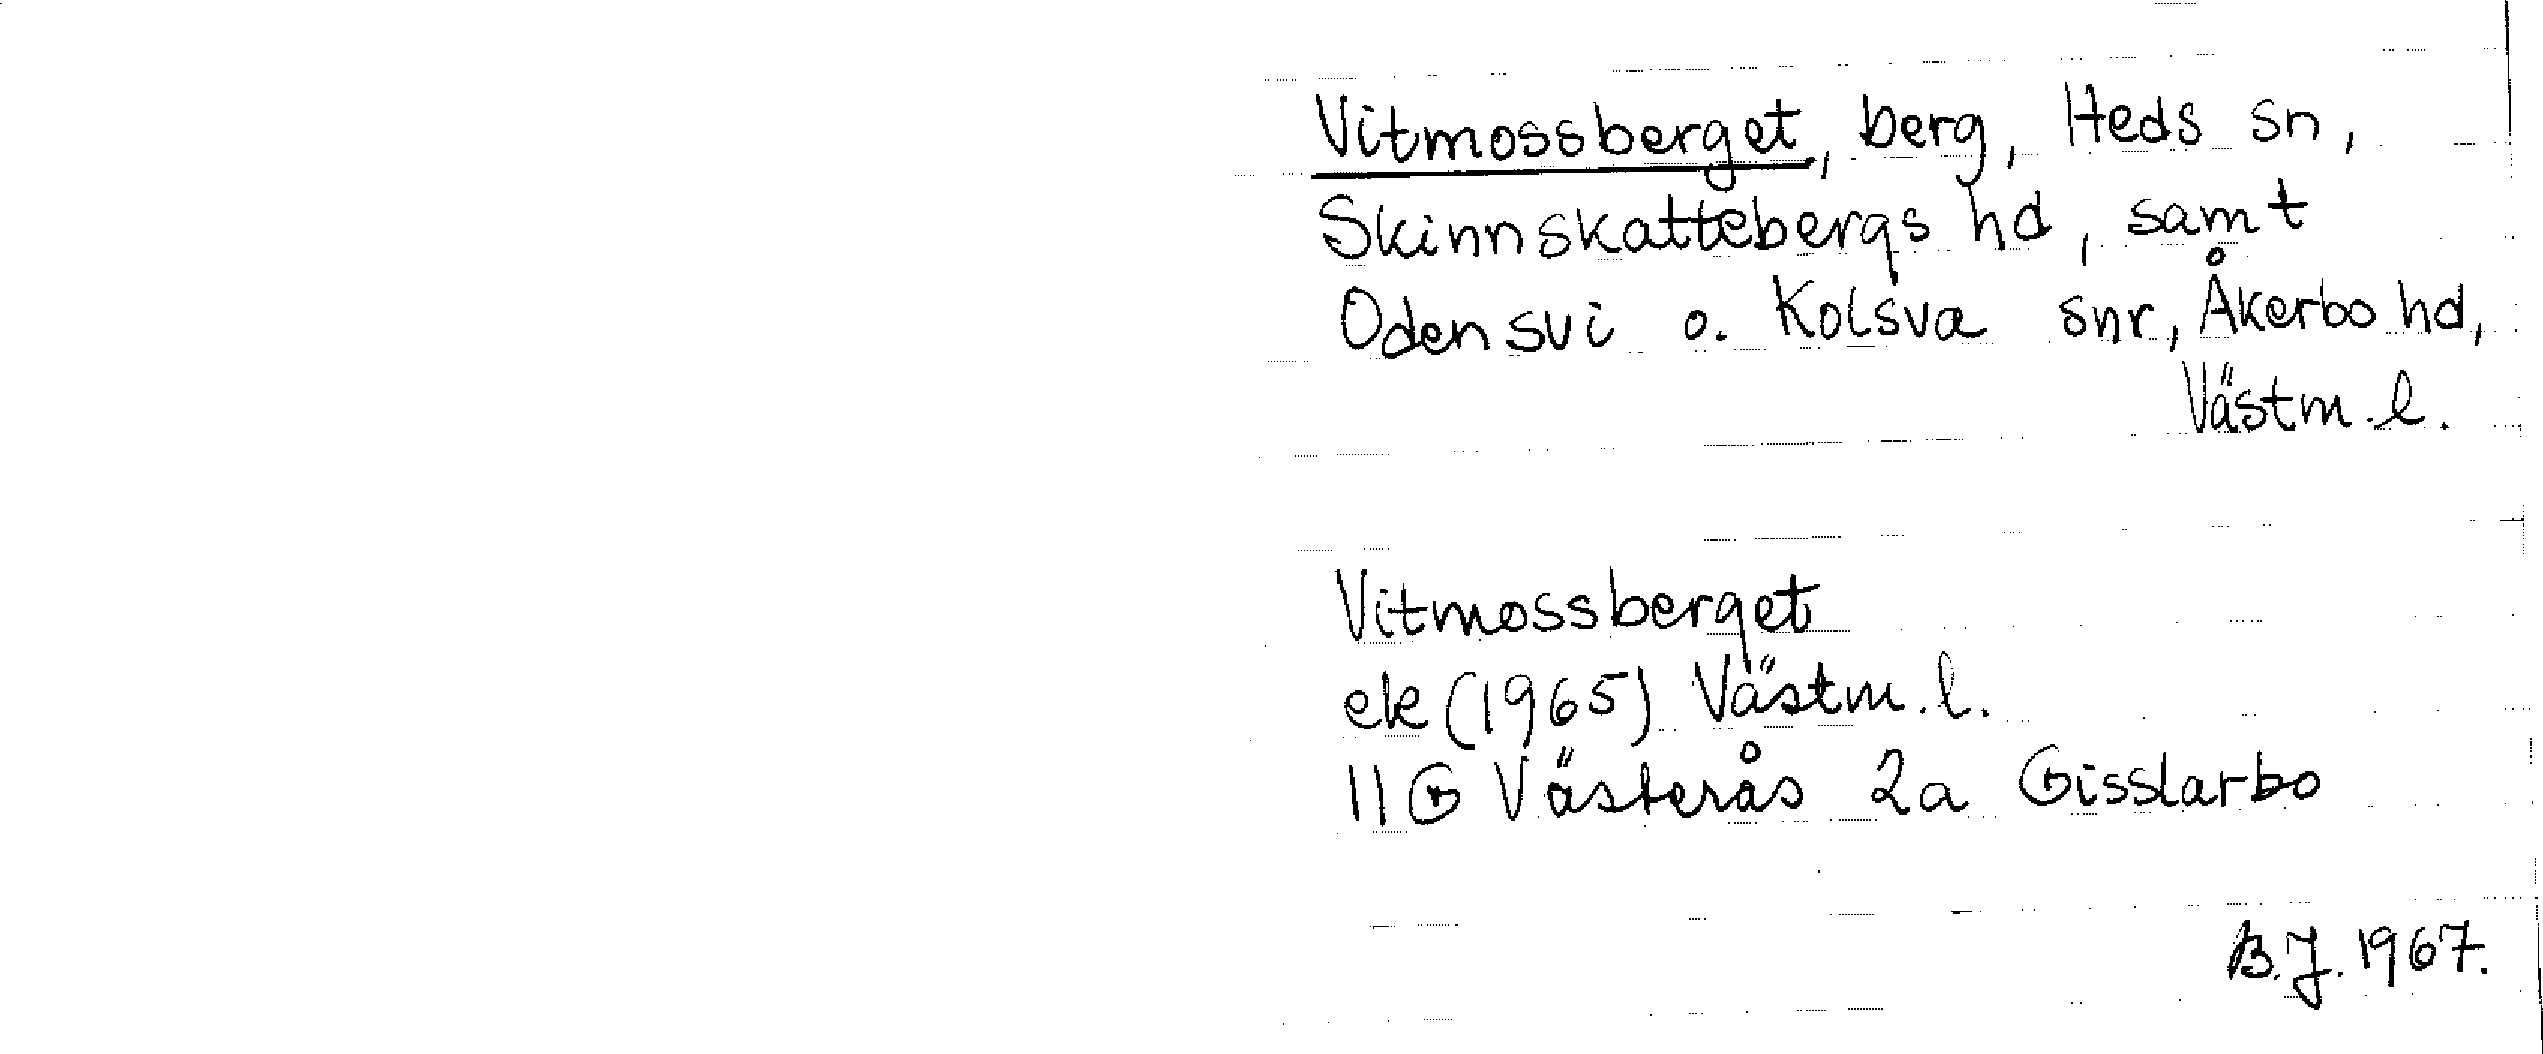 Vitmossberget, berg, Heds sn,
Skinnskattebergs hd, samt
Odensvi o. Kolsva snr, Åkerbo hd,
Västm.l.
Vitmossberget
ek (1965) Västm.l.
11G Västerås 2a Gisslarbo
B.J. 1967.